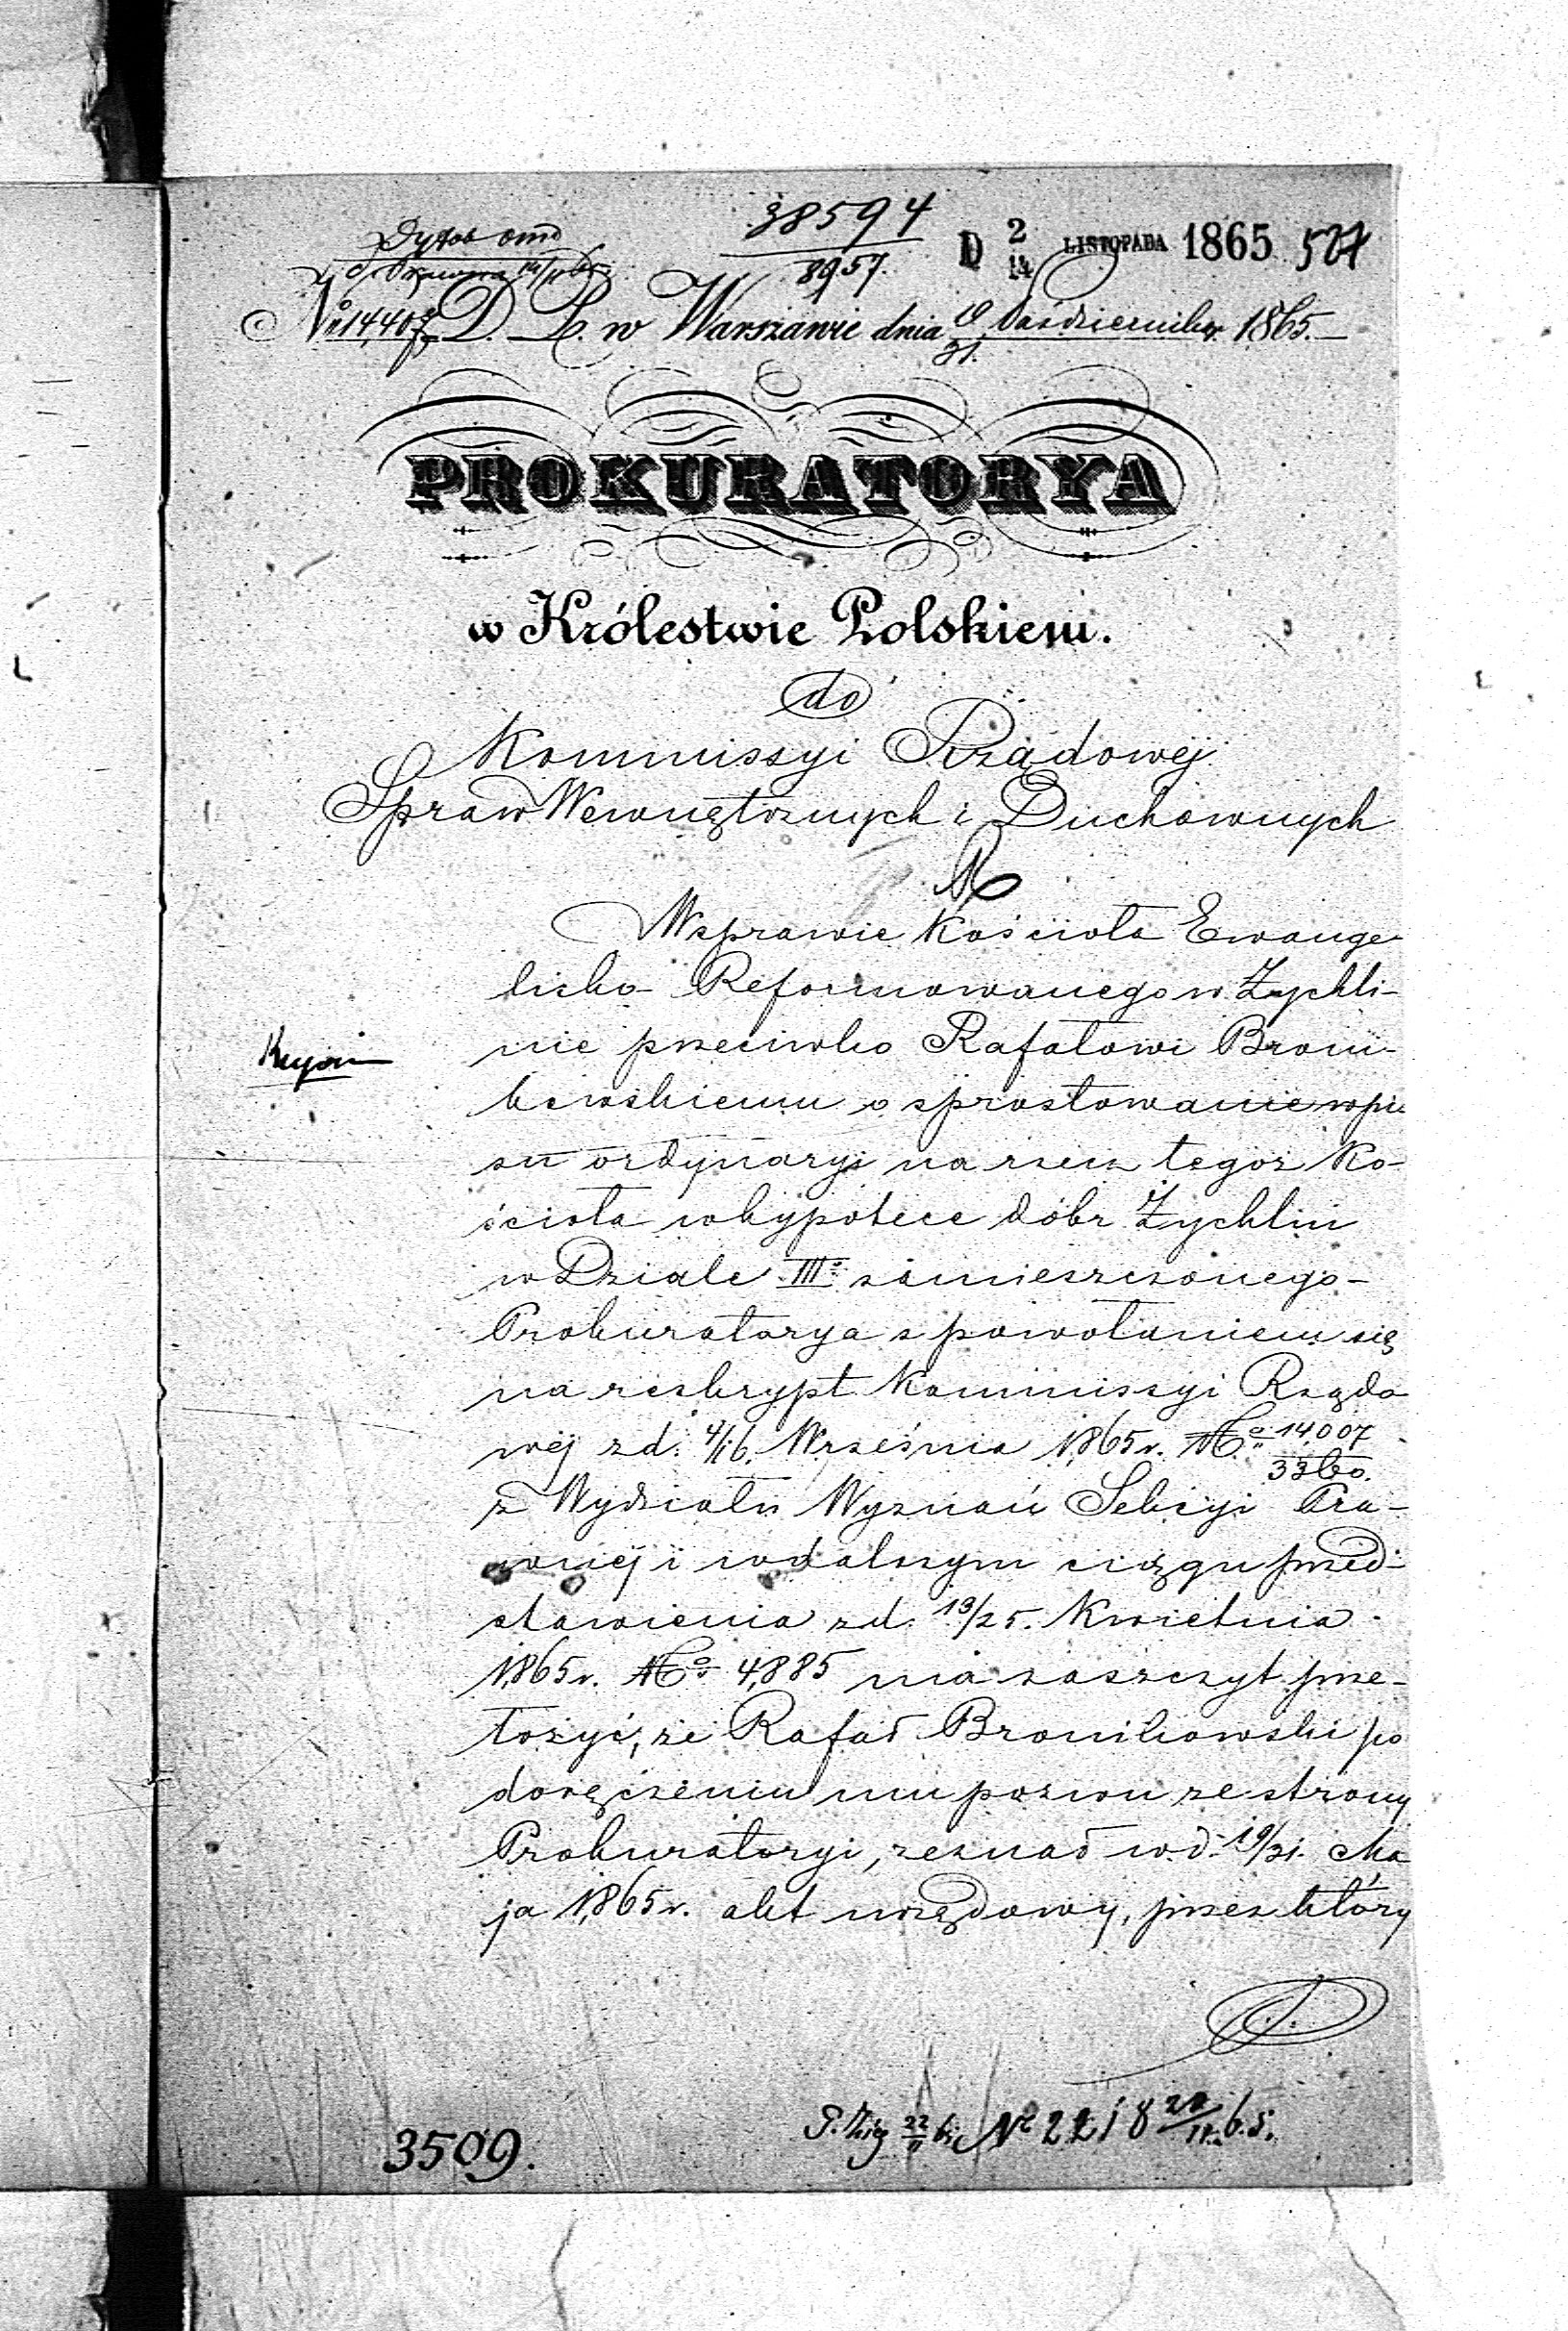 38594
8957.
D 2/14 LISTOPADA 1865 507
No 14,407 D. L. w Warszawie dnia 19/31. Października 1865.
PROKURATORYA
w Królestwie Polskiem.
do
Kommissyi Rządowej
Spraw Wewnętrznych i Duchownych
W sprawie Kościoła Ewange-
licko-Reformowanego w Żychli-
nie przeciwko Rafałowi Broni-
kowskiemu o sprostowanie wpi-
su ordynaryi na rzecz tegoż Ko-
ścioła w hypotece dóbr Żychlin
w Dziale III. zamieszczonego-
Prokuratorya z powołaniem się
na reskrypt Kommissyi Rządo-
wej z d. 4/16. Września 1865 r. No 14,007
33160.
z Wydziału Wyznań Sekcyi Pra-
wnej i w dalszym ciągu przed-
stawienia z d. 13/25. Kwietnia
1865 r. No 4,885 ma zaszczyt prze-
łożyć, że Rafał Bronikowski po
doręczeniu mu pozwu ze strony
Prokuratoryi, zeznał w d. 19/31. Ma
ja 1865 r. akt urzędowy, przez który
3509.
No 2218